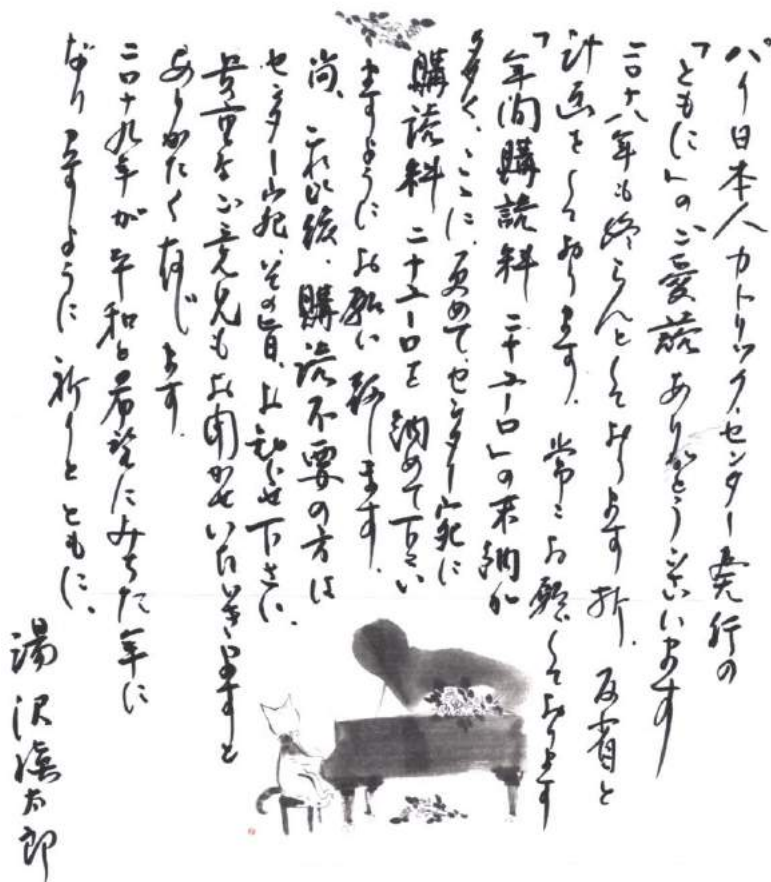 パリ日本人カトリック・センター発行の
「ともに」のご愛読ありがとうございます
二〇十八年も終らんとしております折、反省と
計画をしております。常にお願いしております
「年間購読料 二十ユーロ」の未納が
多く、ここに、更めて、センター宛に
購読料 二十ユーロを納めて下さい
ますようにお願い致します。
尚、これ以後、購読不要の方は
センター宛、その旨、お知らせ下さい。
貴重なご意見もお聞かせいただきますと
ありがたく存じます。
二〇十九年が平和と希望にみちた年に
なりますように 祈りとともに、
湯沢慎太郎